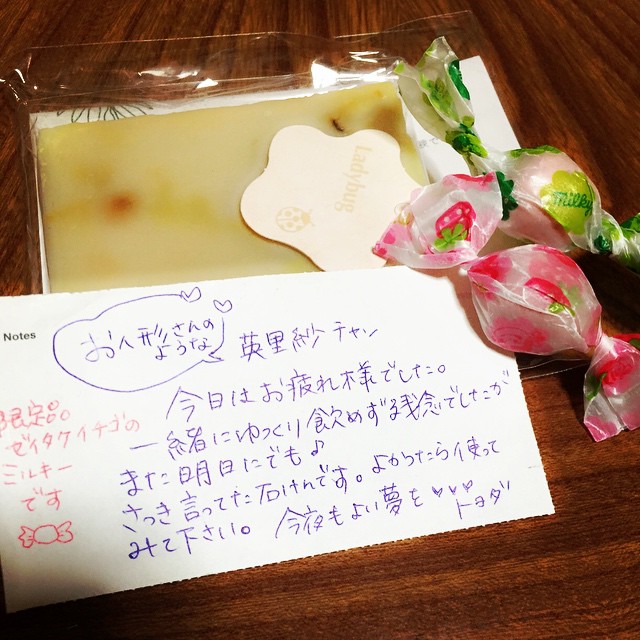 Ladybug
milky
Notes
お人形さんの
ような
英里紗チャン
今日はお疲れ様でした。
一緒にゆっくり飲めずる残念でしたが
また明日にでも♪
さっき言ってた石けんです。よかったら使って
みて下さい。 今夜もよい夢を♥♥♥
トヨダ
限定品。
ゼイタクイチゴの
ミルキー
です